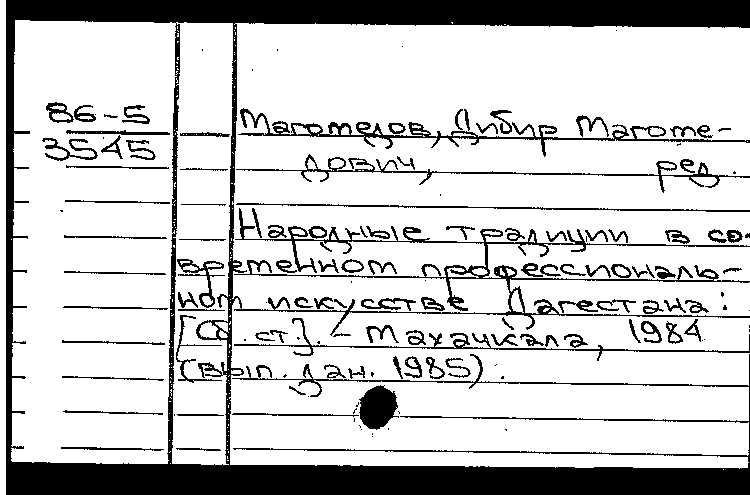 86-5
3545
Магомедов, Дибир Магоме-
дович, ред.
Народные традиции в со-
временном профессиональ-
ном искусстве Дагестана:
[Сб. ст.]. - Махачкала, 1984
(вып. дан. 1985).